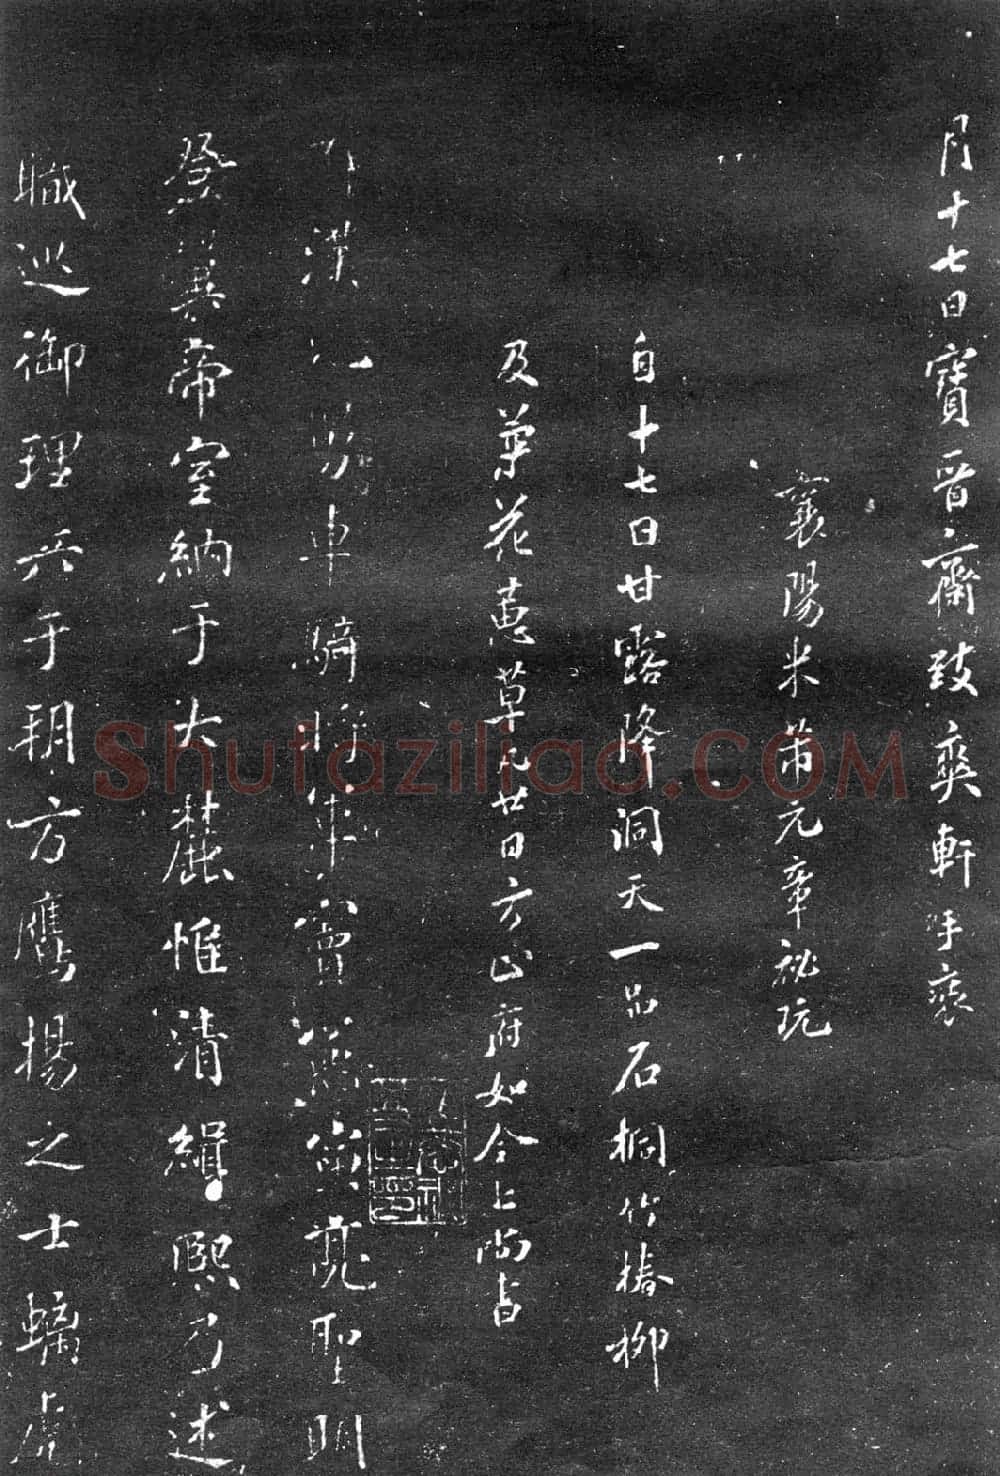 月十七日寶晉齋致爽軒手裝
襄陽米芾元章祕玩
自十七日甘露降洞天一品石桐竹椿柳
及菓花蕙草凡廿日方止府如今上尚
漢元舅車騎將軍竇憲寅亮聖明
登翼帝室納于大麓惟清緝熙乃述
職巡御理兵于朔方鷹揚之士螭虎
Shufaziliao.COM